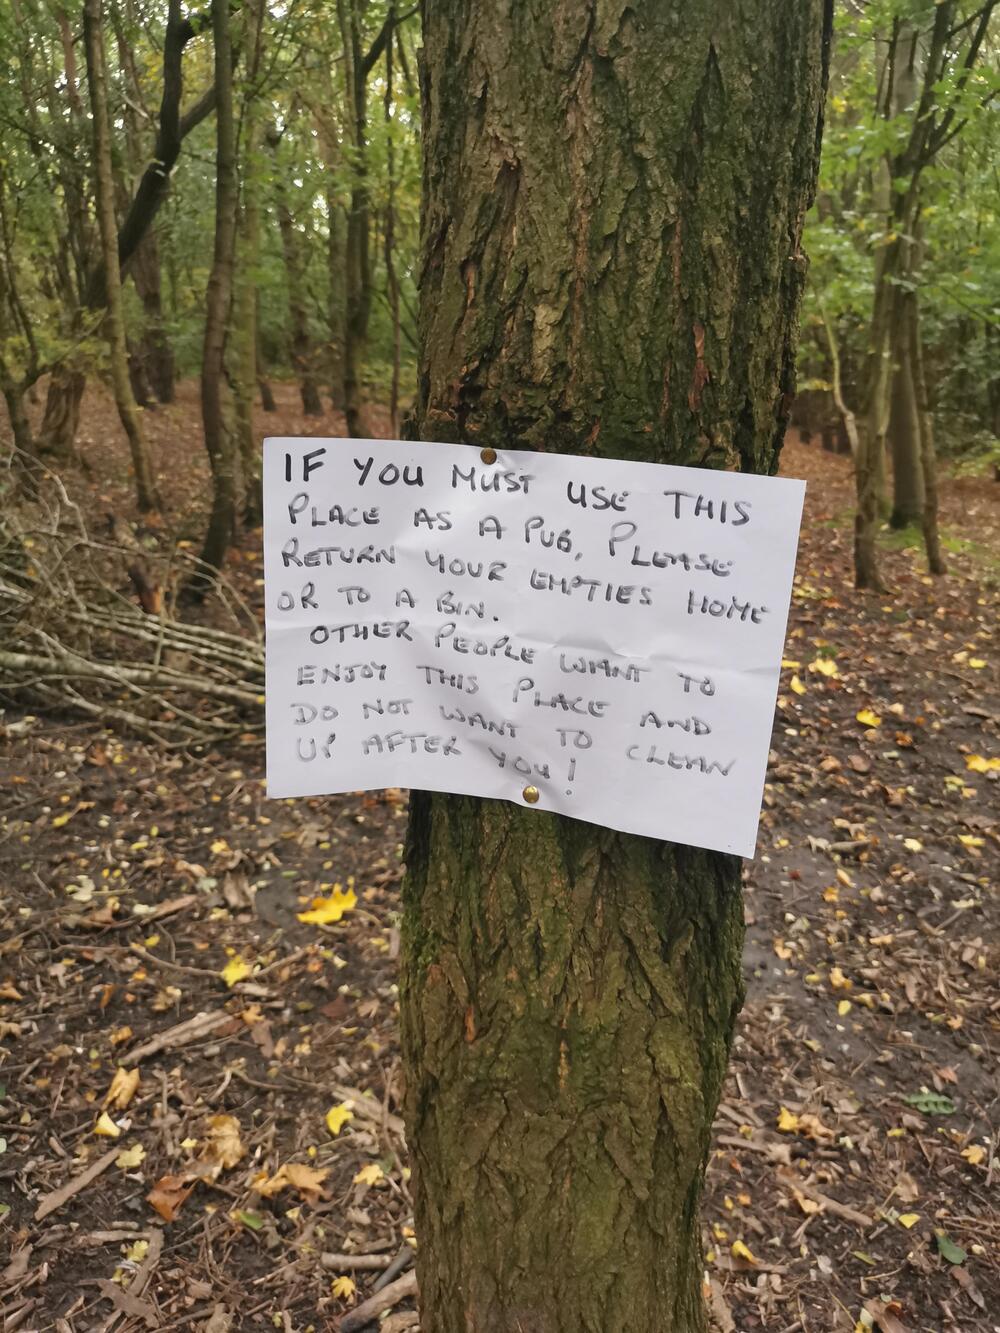 IF YOU MUST USE THIS
PLACE AS A PUB, PLEASE
RETURN YOUR EMPTIES HOME
OR TO A BIN.
OTHER PEOPLE WANT TO
ENJOY THIS PLACE AND
DO NOT WANT TO CLEAN
UP AFTER YOU!